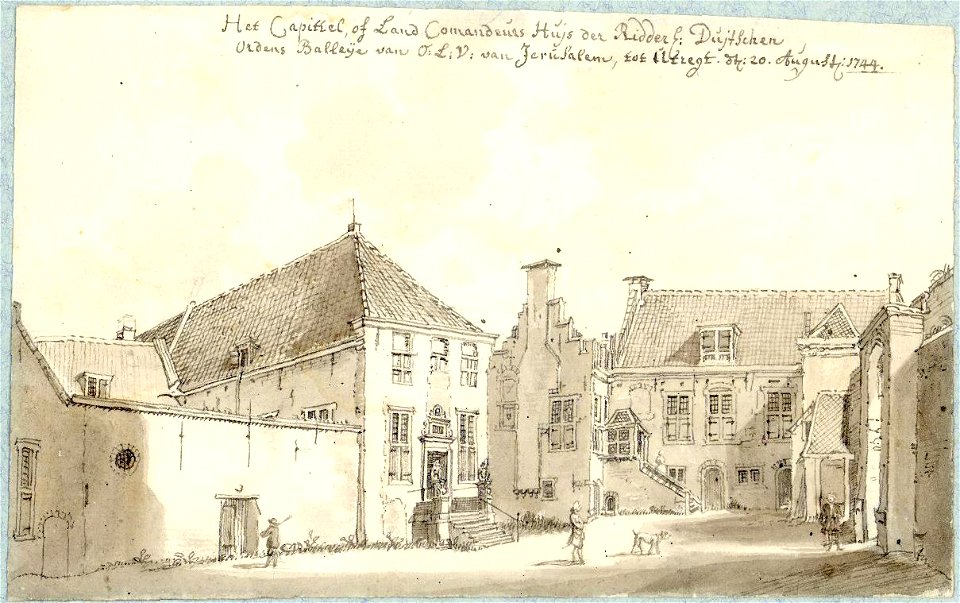 Het Capittel, of Land Comandeurs Huijs der Ridders: Duijtschen
Ordens Balleÿe van O: L: V: van Jerusalem, tot Utregt. d: 20. August: 1744.